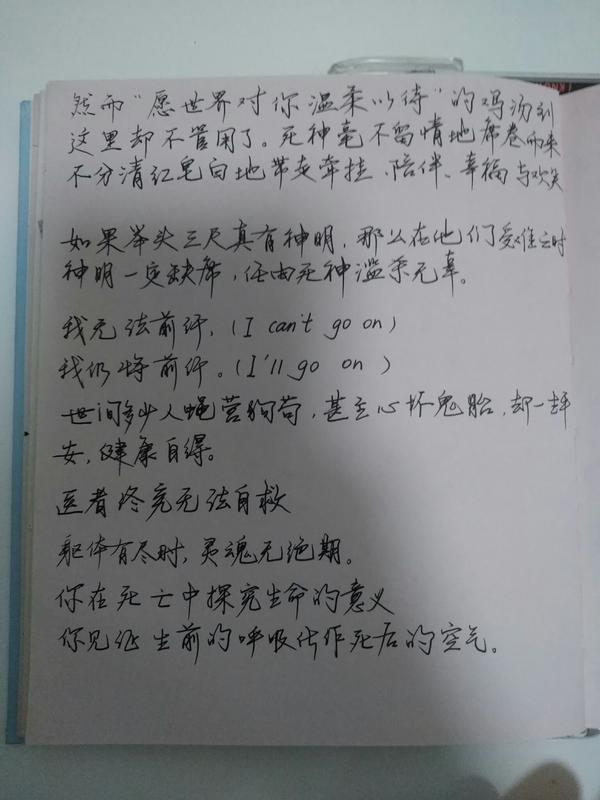 然而"愿世界对你温柔以待"的鸡汤到
这里却不管用了。死神毫不留情地席卷而来
不分清红皂白地带走牵挂、陪伴、幸福与欢笑
如果举头三尺真有神明，那么在他们受难之时
神明一定缺席，任由死神滥杀无辜。
我无法前行，(I can't go on)
我仍将前行。(I'll go on)
世间多少人蝇营狗苟，甚至心怀鬼胎，却一生平
安，健康自得。
医者终究无法自救
躯体有尽时，灵魂无绝期。
你在死亡中探究生命的意义
你见证生前的呼吸化作死后的空气。